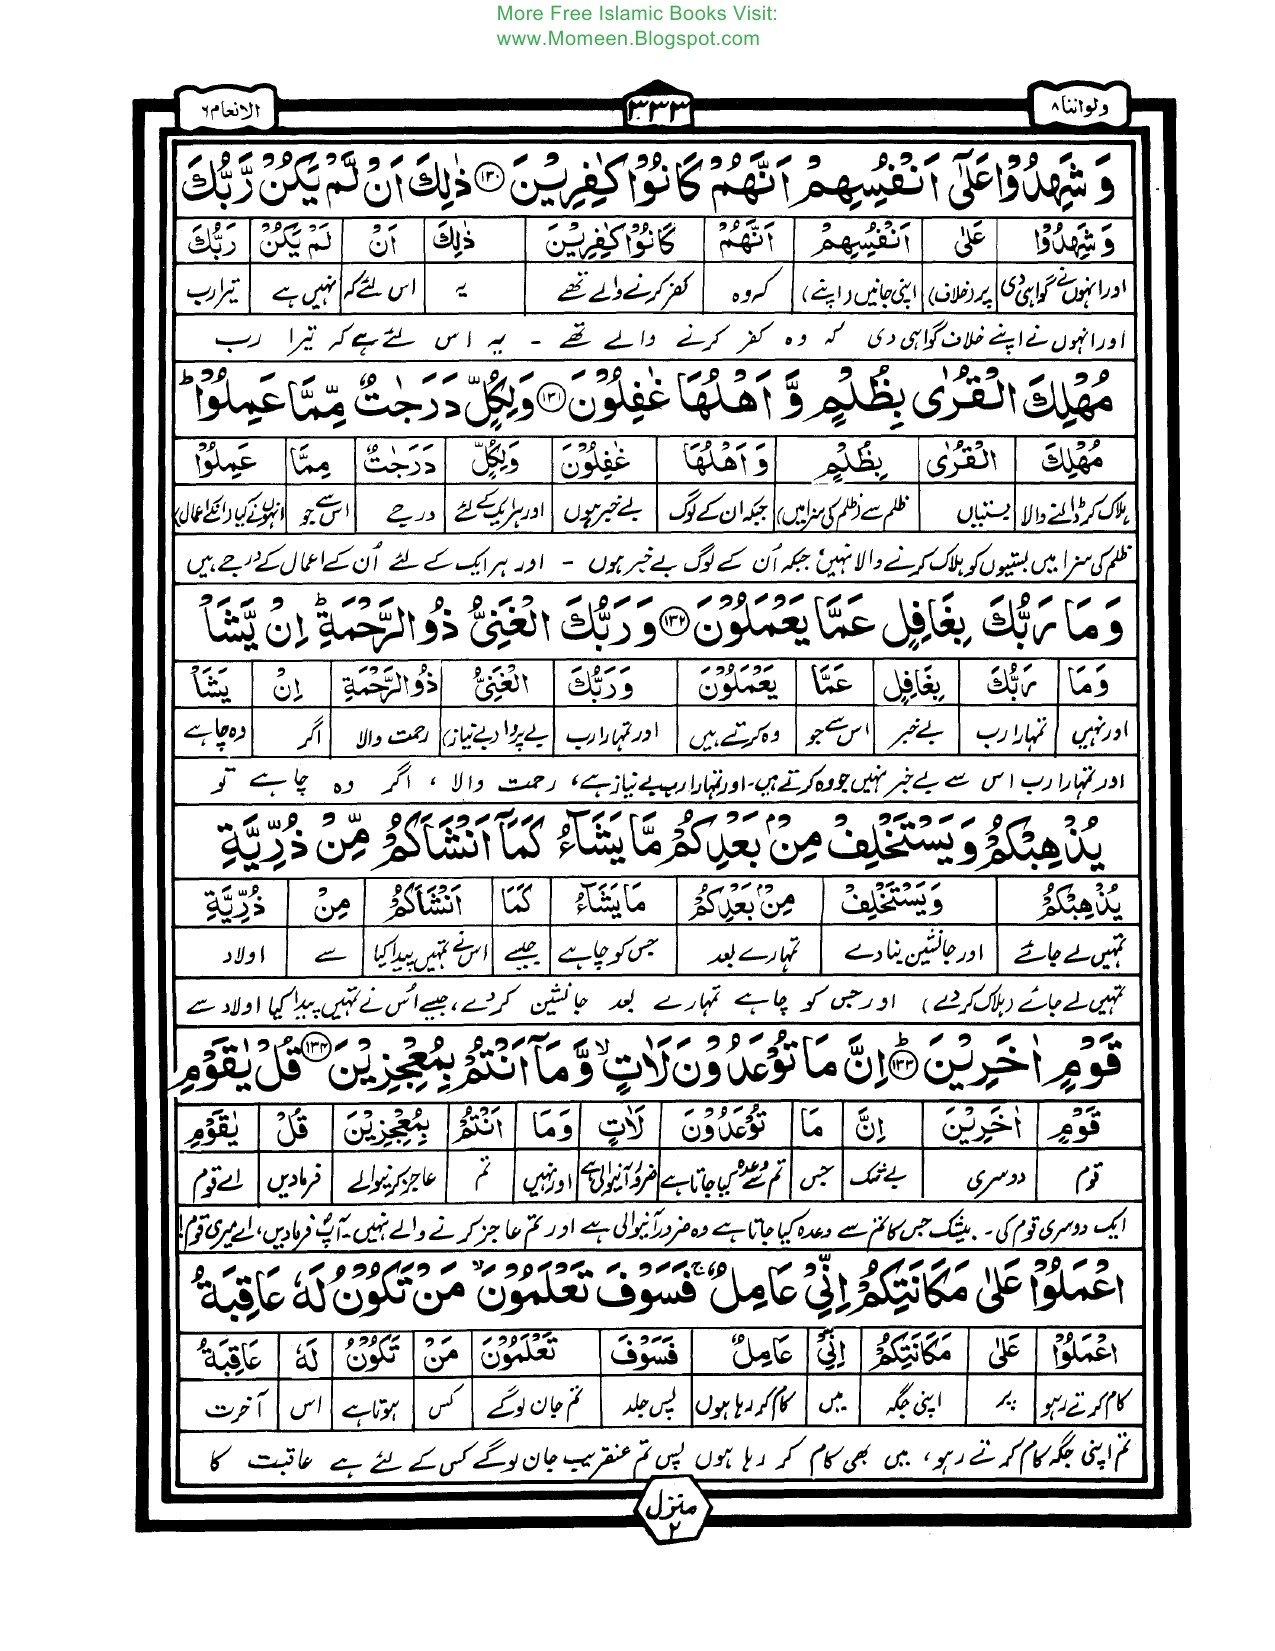 More Free Islamic Books Visit:
www.Momeen.Blogspot.com
ولواننا ۸ ۳۳۳ الانعام ۶
وَ شَهِدُوْا عَلٰۤى اَنْفُسِهِمْ اَنَّهُمْ كَانُوْا كٰفِرِيْنَ ۱۳۰ ذٰلِكَ اَنْ لَّمْ يَكُنْ رَّبُّكَ
وَ شَهِدُوْا عَلٰى اَنْفُسِهِمْ اَنَّهُمْ كَانُوْا كٰفِرِيْنَ ذٰلِكَ اَنْ لَمْ يَكُنْ رَبُّكَ
اور انہوں نے گواہی دی پر (خلاف) اپنی جانیں (اپنے) کہ وہ کفر کرنے والے تھے یہ اس لئے کہ نہیں ہے تیرا رب
اور انہوں نے اپنے خلاف گواہی دی کہ وہ کفر کرنے والے تھے - یہ اس لئے ہے کہ تیرا رب
مُهْلِكَ الْقُرٰى بِظُلْمٍ وَّ اَهْلُهَا غٰفِلُوْنَ ۱۳۱ وَلِكُلٍّ دَرَجٰتٌ مِّمَّا عَمِلُوْا ؕ
مُهْلِكَ الْقُرٰى بِظُلْمٍ وَ اَهْلُهَا غٰفِلُوْنَ وَلِكُلٍّ دَرَجٰتٌ مِمَّا عَمِلُوْا
ہلاک کر ڈالنے والا بستیاں ظلم سے (ظلم کی سزا میں) جبکہ ان کے لوگ بے خبر ہوں اور ہر ایک کے لئے درجے اس سے جو انہوں نے کیا (انکے اعمال)
ظلم کی سزا میں بستیوں کو ہلاک کرنے والا نہیں جبکہ اُن کے لوگ بے خبر ہوں - اور ہر ایک کے لئے اُن کے اعمال کے درجے ہیں
وَ مَا رَبُّكَ بِغَافِلٍ عَمَّا يَعْمَلُوْنَ ۱۳۲ وَ رَبُّكَ الْغَنِىُّ ذُو الرَّحْمَةِ ؕ اِنْ يَّشَاْ
وَمَا رَبُّكَ بِغَافِلٍ عَمَّا يَعْمَلُوْنَ وَرَبُّكَ الْغَنِىُّ ذُو الرَّحْمَةِ اِنْ يَشَاْ
اور نہیں تمہارا رب بے خبر اس سے جو وہ کرتے ہیں اور تمہارا رب بے پروا (بے نیاز) رحمت والا اگر وہ چاہے
اور تمہارا رب اس سے بے خبر نہیں جو وہ کرتے ہیں۔ اور تمہارا رب بے نیاز ہے، رحمت والا ، اگر وہ چاہے تو
يُذْهِبْكُمْ وَ يَسْتَخْلِفْ مِنْۢ بَعْدِكُمْ مَّا يَشَآءُ كَمَاۤ اَنْشَاَكُمْ مِّنْ ذُرِّيَّةِ
يُذْهِبْكُمْ وَيَسْتَخْلِفْ مِنْۢ بَعْدِكُمْ مَا يَشَآءُ كَمَا اَنْشَاَكُمْ مِنْ ذُرِّيَّةِ
تمہیں لے جائے اور جانشین بنا دے تمہارے بعد جس کو چاہے جیسے اس نے تمہیں پیدا کیا سے اولاد
تمہیں لے جائے (ہلاک کر دے) اور جس کو چاہے تمہارے بعد جانشین کر دے ، جیسے اُس نے تمہیں پیدا کیا اولاد سے
قَوْمٍ اٰخَرِيْنَ ؕ ۱۳۳ اِنَّ مَا تُوْعَدُوْنَ لَاٰتٍ ۙ وَّ مَاۤ اَنْتُمْ بِمُعْجِزِيْنَ ۱۳۴ قُلْ يٰقَوْمِ
قَوْمٍ اٰخَرِيْنَ اِنَّ مَا تُوْعَدُوْنَ لَاٰتٍ وَمَا اَنْتُمْ بِمُعْجِزِيْنَ قُلْ يٰقَوْمِ
قوم دوسری بے شک جس تم سے وعدہ کیا جاتا ہے ضرور آنیوالی ہے اور نہیں تم عاجز کرنیوالے فرما دیں اے قوم
ایک دوسری قوم کی۔ بیشک جس کا تم سے وعدہ کیا جاتا ہے وہ ضرور آنیوالی ہے اور تم عاجز کرنے والے نہیں۔ آپؐ فرما دیں، اے میری قوم!
اعْمَلُوْا عَلٰى مَكَانَتِكُمْ اِنِّىْ عَامِلٌ ۚ فَسَوْفَ تَعْلَمُوْنَ ۙ مَنْ تَكُوْنُ لَهٗ عَاقِبَةُ
اعْمَلُوْا عَلٰى مَكَانَتِكُمْ اِنِّىْ عَامِلٌ فَسَوْفَ تَعْلَمُوْنَ مَنْ تَكُوْنُ لَهٗ عَاقِبَةُ
کام کرتے رہو پر اپنی جگہ میں کام کر رہا ہوں پس جلد تم جان لوگے کس ہوتا ہے اس آخرت
تم اپنی جگہ کام کرتے رہو، میں بھی کام کر رہا ہوں پس تم عنقریب جان لوگے کس کے لئے ہے عاقبت کا
منزل ۲